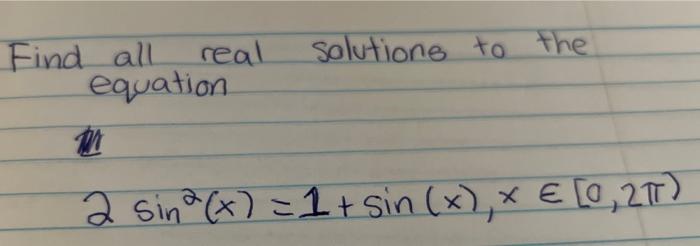 Find all real solutions to the
equation
2 sin²(x) = 1 + sin(x), x ∈ [0, 2π)